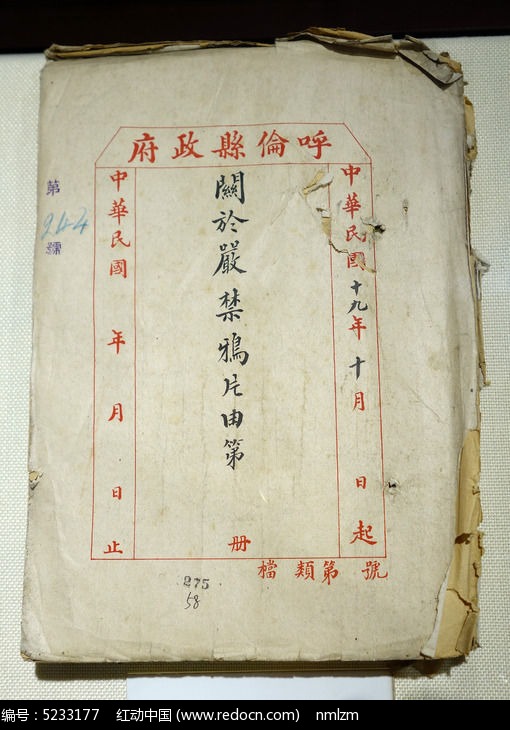 呼倫縣政府
中華民國十九年十月　日起
關於嚴禁鴉片由第　冊
中華民國　年　月　日止
號　第類　檔
第
244
號
275
58
编号：5233177　红动中国 (www.redocn.com)　nmlzm